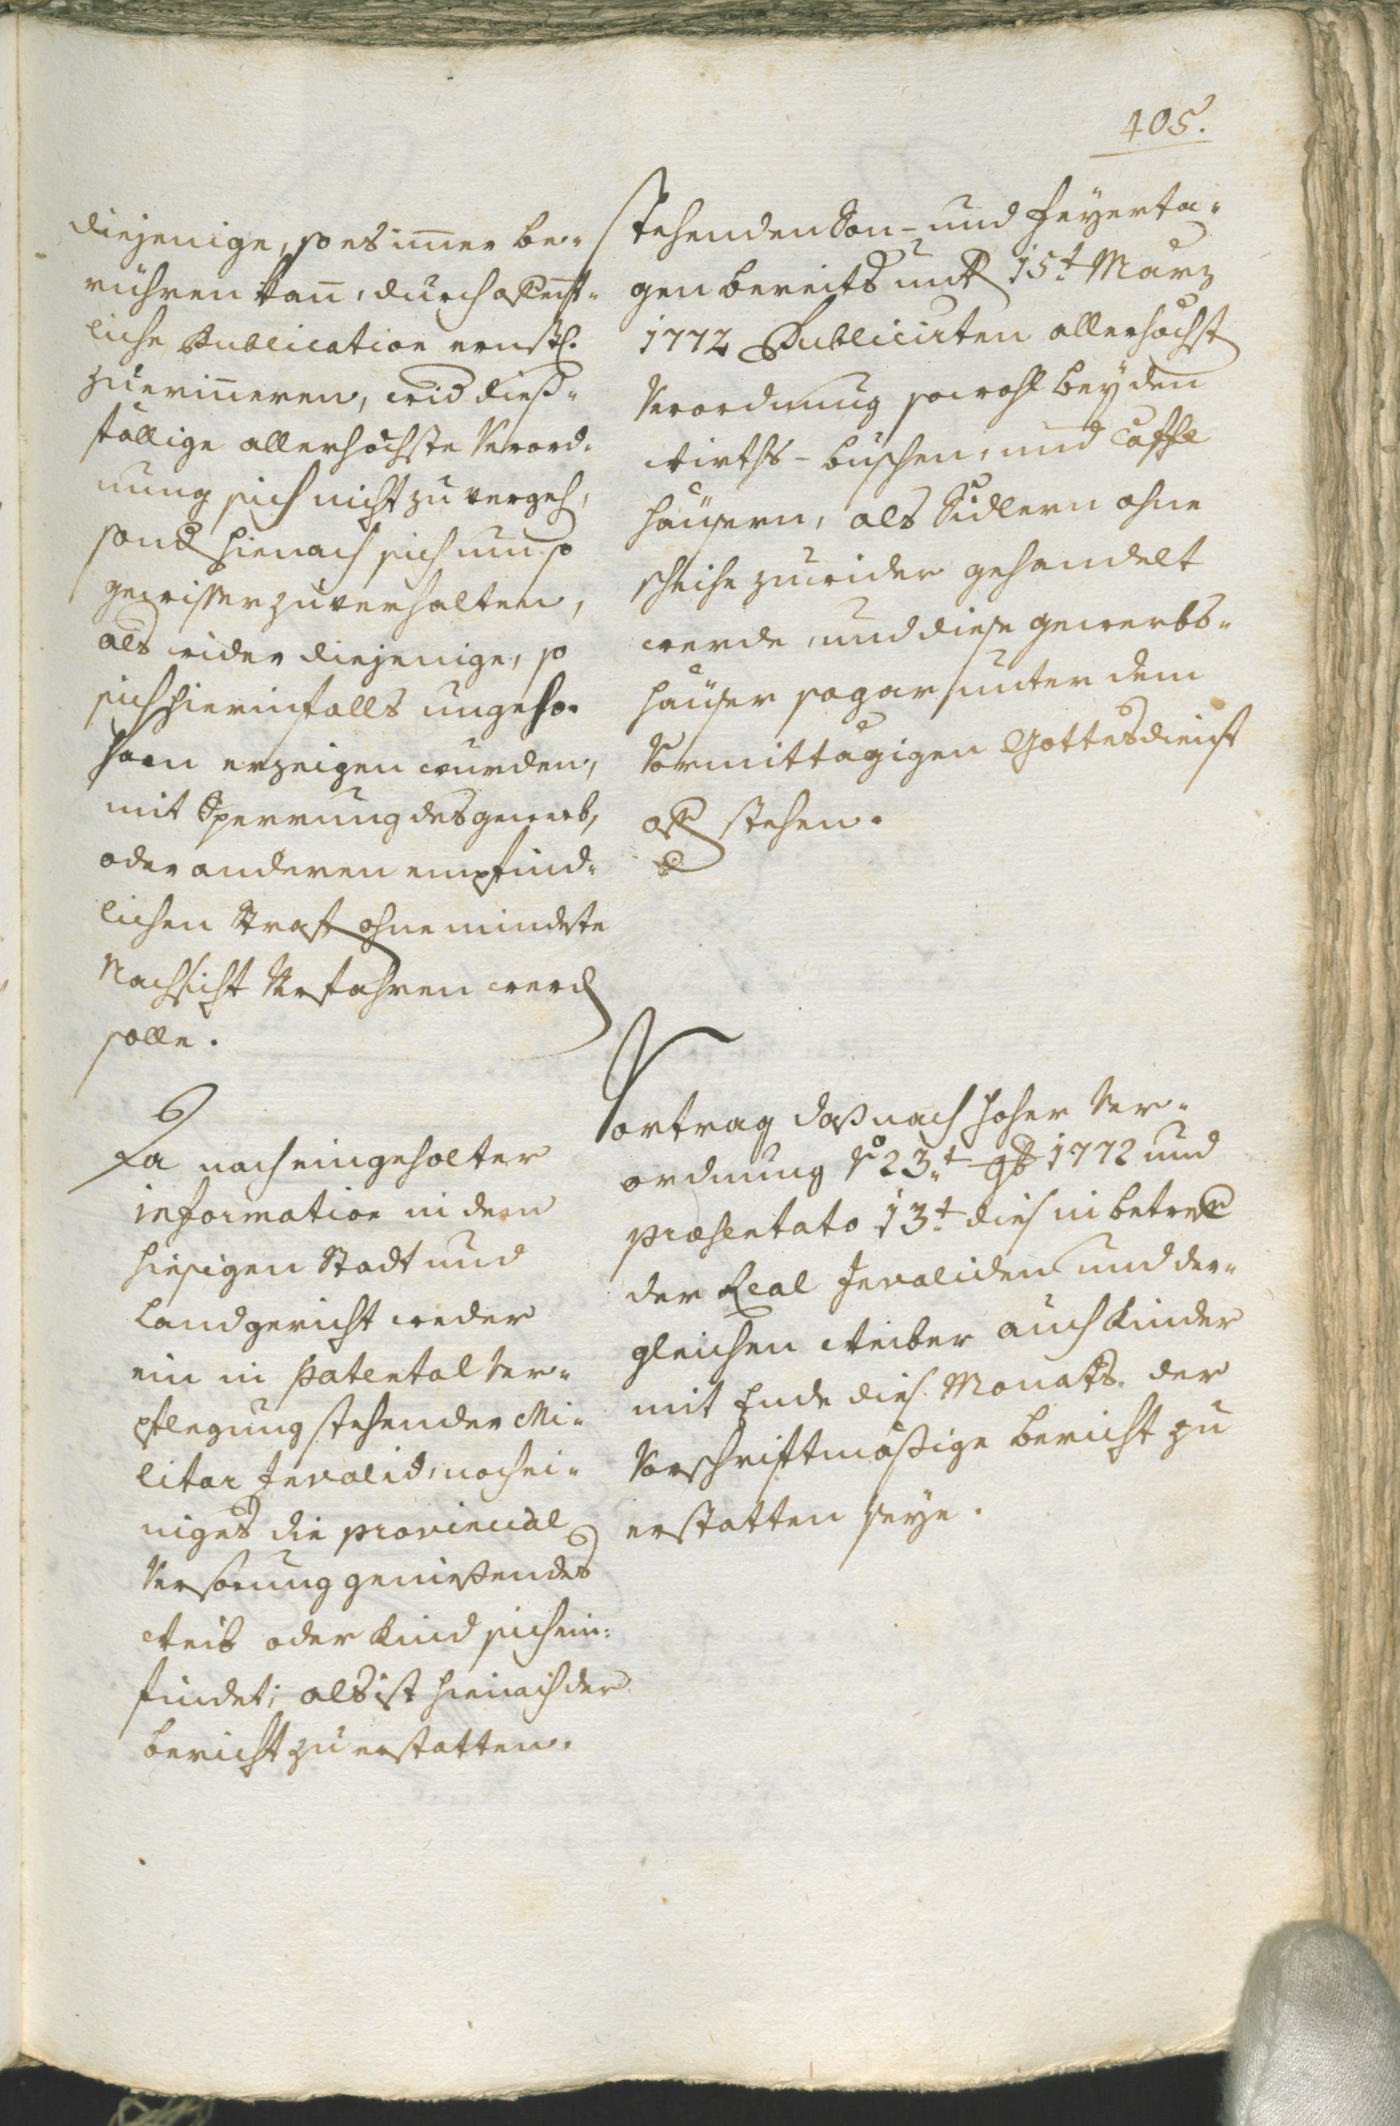 405.
diejenige, so es im̅er be-
rühren kan̅, durch offent-
liche Publication ernstl.
zu erin̅eren, wid dieß-
fällige allerhöchste Verord-
nung sich nicht zu vergeh,
sond hienach sich um so
gewisser zu verhalten,
als wider diejenige, so
sich hierinfalls ungeho-
sam erzeigen wurden,
mit Sperrung des gewerb,
oder anderen empfind-
lichen Straf ohne mindste
Nachsicht Verfahren werd
solle.
Da nach eingeholter
information in dem
hiesigen Stadt und
Landgericht weder
ein in Patental Ver-
pflegung stehender Mi-
litar Invalid, noch ei-
niges die provincial
Versorung geniessendes
Weib oder Kind sich ein-
findet; als ist hienach der
bericht zu erstatten.
stehenden Son- und Feyerta-
gen bereits unt 15t. Marz
1772 Publicirten allerhöchst
Verordnung sowohl bey den
Wirths- buschen, und Caffe
häusern, als Sudlern ohne
scheihe zuwider gehandelt
werde, und diese gewerbs-
häuser sogar unter dem
Vormittägigen Gottesdienst
off stehen.
Vortrag daß nach hoher Ver-
ordnung Vo 23t. 9b 1772 und
præsentato 13t. dies in betref
der Real Invaliden und der-
gleichen Weiber auch Kinder
mit Ende dies. Monats. der
Vorschriftmäßige bericht zu
erstatten seye.